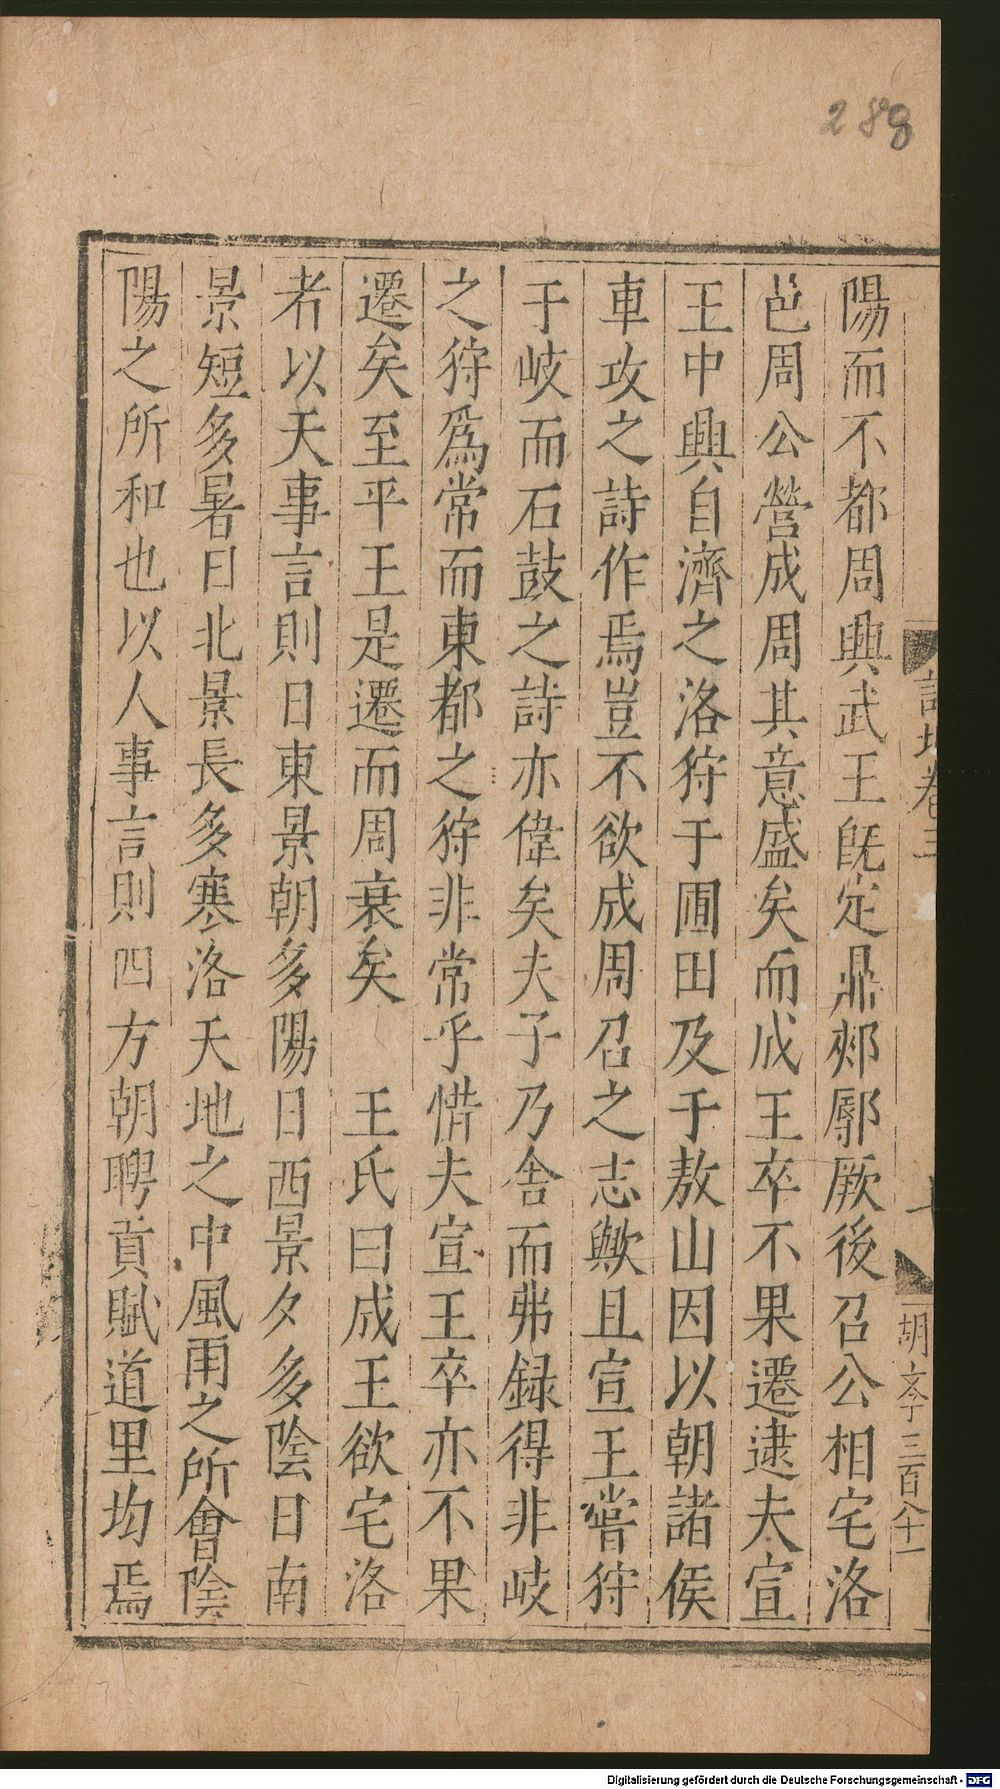 288
詩地卷三
胡文 李三百八十一
陽而不都周興武王旣定鼎郟鄏厥後召公相宅洛
邑周公營成周其意盛矣而成王卒不果遷逮夫宣
王中興自濟之洛狩于圃田及于敖山因以朝諸侯
車攻之詩作焉豈不欲成周召之志歟且宣王嘗狩
于岐而石鼓之詩亦偉矣夫子乃舍而弗録得非岐
之狩爲常而東都之狩非常乎惜夫宣王卒亦不果
遷矣至平王是遷而周衰矣　王氏曰成王欲宅洛
者以天事言則日東景朝多陽日西景夕多陰日南
景短多暑日北景長多寒洛天地之中風雨之所會陰
陽之所和也以人事言則四方朝聘貢賦道里均焉
Digitalisierung gefördert durch die Deutsche Forschungsgemeinschaft - DFG